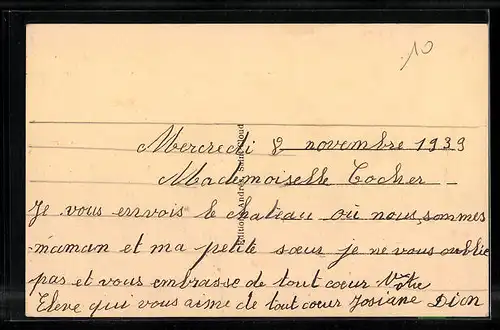 10
Mercredi 8 novembre 1939
Mademoiselle Cocher
Je vous envois le chateau où nous sommes
maman et ma petite sœur je ne vous oublie
pas et vous embrasse de tout cœur Votre
Eleve qui vous aime de tout cœur Josiane Dion
Editions André